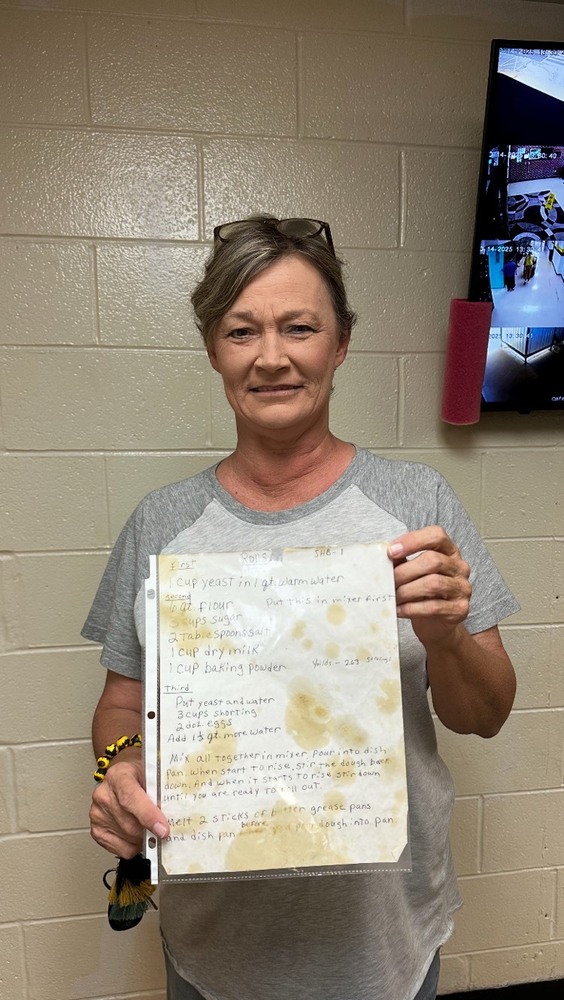 SHB-1
First
1 cup yeast in 1 qt. warm water
Second
6 qt flour
Put this in mixer first
3 cups sugar
2 Tablespoons salt
1 cup dry milk
1 cup baking powder
Yields - 263 servings
Third
Put yeast and water
3 cups shorting
2 doz eggs
Add 1½ qt. more water
Mix all together in mixer pour into dish
Pan. when start to rise, stir the dough back
down. And when it starts to rise stir down
until you are ready to roll out.
Melt 2 sticks of butter grease pans
before
and dish pan dough into pan.
2025 13:30:40
14-2025 13:30
2025 13:30:41